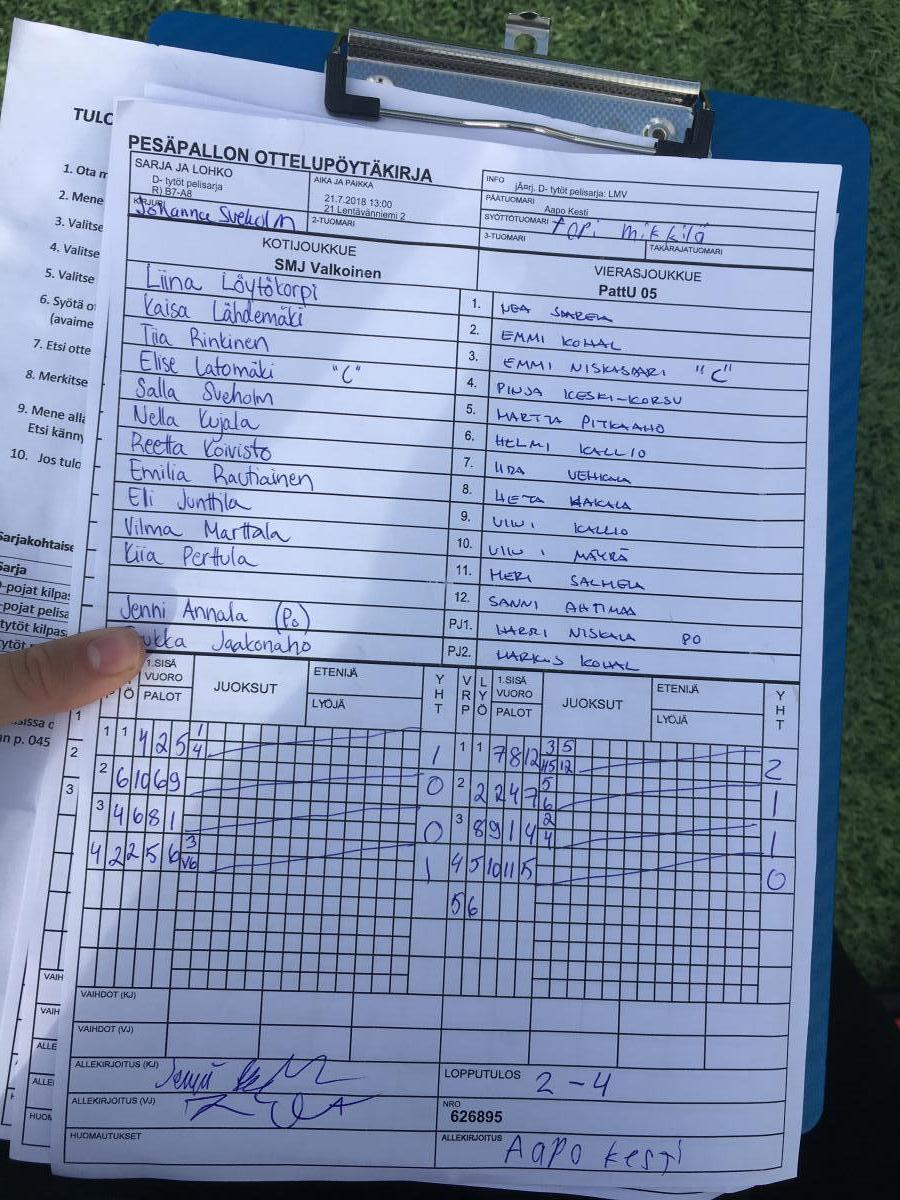 TULO
1. Ota m
2. Mene
3. Valitse
4. Valitse
5. Valitse
6. Syötä o
(avaime
7. Etsi otte
8. Merkitse
9. Mene alla
Etsi känny
10. Jos tulo
Sarjakohtaise
Sarja
-pojat pelisa
PESÄPALLON OTTELUPÖYTÄKIRJA
SARJA JA LOHKO
D- tytöt pelisarja
R) B7-A8
AIKA JA PAIKKA
21.7.2018 13:00
21 Lentävänniemi 2
INFO
jÄ¤rj. D- tytöt pelisarja: LMV
PÄÄTUOMARI
Aapo Kesti
KIRJURI
Johanna Sveholm
2-TUOMARI
SYÖTTÖTUOMARI
Topi Mikkilä
3-TUOMARI
TAKARAJATUOMARI
KOTIJOUKKUE
SMJ Valkoinen
VIERASJOUKKUE
PattU 05
Liina Löytökorpi
1. NEA SAARELA
Kaisa Lähdemäki
2. EMMI KOHAL
Tiia Rinkinen
3. EMMI NISKASAARI "C"
Elise Latomäki "C"
4. PINJA KESKI-KORSU
Salla Sveholm
5. MARTTA PITKÄAHO
Nella Kujala
6. HELMI KALLIO
Reetta Koivisto
7. IIDA
Emilia Rautiainen
8. HETA HAKALA
Eli Junttila
9. VIIVI KALLIO
Vilma Marttala
10. VIIVI MÄYRÄ
Kiia Perttula
11. MERI SALMELA
12. SANNI AHTIMAA
Jenni Annala (Po)
PJ1. HARRI NISKALA PO
Jaakonaho
PJ2. MARKUS KOHAL
1.SISÄ
VUORO
PALOT
JUOKSUT
ETENIJÄ
LYÖJÄ
YHT
VRP
LYÖ
1.SISÄ
VUORO
PALOT
JUOKSUT
ETENIJÄ
LYÖJÄ
YHT
1 1 4 2 5 1 4 1
1 1 7 8 12 3 5 2
2 6 10 6 9 0
2 2 2 4 7 5 6 1
3 4 6 8 1 0
3 8 9 1 4 2 4 1
4 2 2 5 6 3 V6 1
4 5 10 11 5 0
5 6
VAIHDOT (KJ)
VAIHDOT (VJ)
ALLEKIRJOITUS (KJ)
LOPPUTULOS 2 - 4
ALLEKIRJOITUS (VJ)
NRO
626895
HUOMAUTUKSET
ALLEKIRJOITUS Aapo Kesti